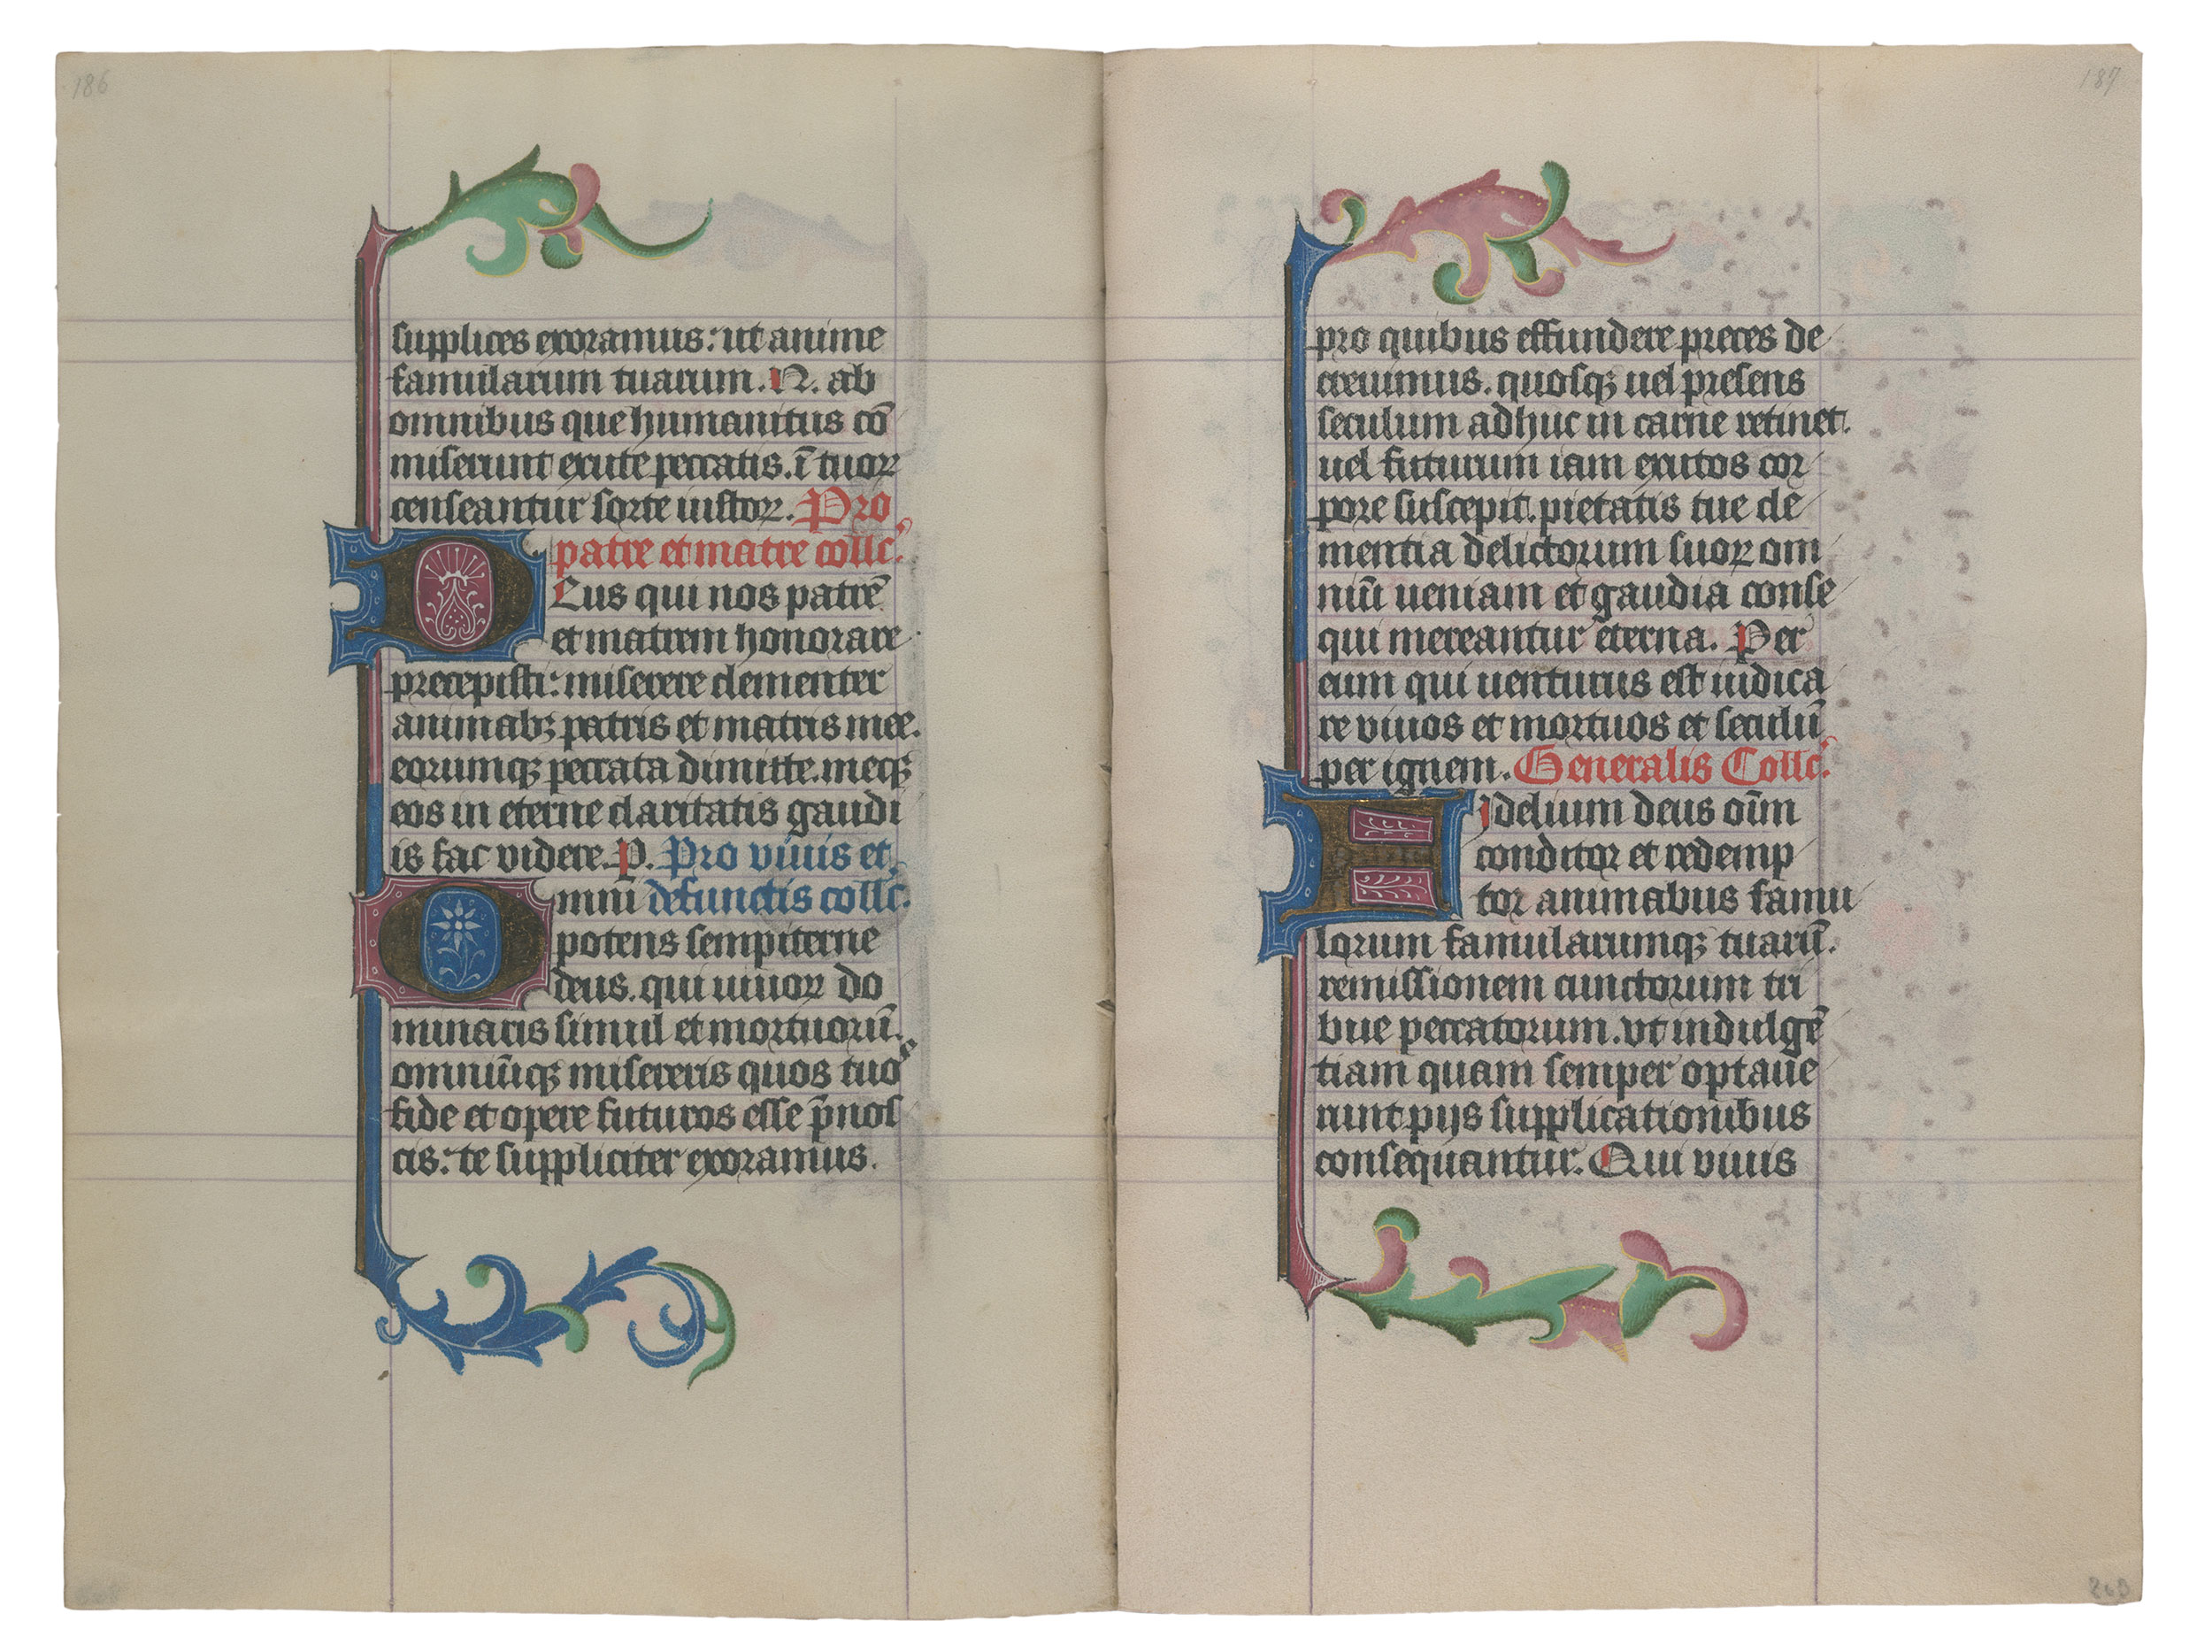 186
supplices exoramus: ut anime
famularum tuarum. N. ab
omnibus que humanitus cō
miserunt exute peccatis. ī tuoꝝ
censeantur sorte iustoꝝ. Pro
patre et matre coll̄c.
DEus qui nos patrē
et matrem honorare
precepisti: miserere clementer
animabꝫ patris et matris mee.
eorumqꝫ peccata dimitte. meqꝫ
eos in eterne claritatis gaudi
is fac videre. P. Pro viuis et
Omni defunctis coll̄c.
potens sempiterne
deus. qui viuoꝝ do
minaris simul et mortuorū.
omniūqꝫ misereris quos tuos
fide et opere futuros esse p̄nos
cis: te suppliciter exoramus.
187
pro quibus effundere preces de
creuimus. quosqꝫ uel presens
seculum adhuc in carne retinet.
uel futurum iam exutos cor
pore suscepit. pietatis tue cle
mentia delictorum suoꝝ om
niū ueniam et gaudia conse
qui mereantur eterna. Per
eum qui uenturus est iudica
re viuos et mortuos et seculū
per ignem. Generalis Coll̄c.
FIdelium deus om̄
conditor et redemp
tor animabus famu
lorum famularumqꝫ tuarū.
remissionem cunctorum tri
bue peccatorum. vt indulgē
tiam quam semper optaue
runt pijs supplicationibus
consequantur. Qui viuis